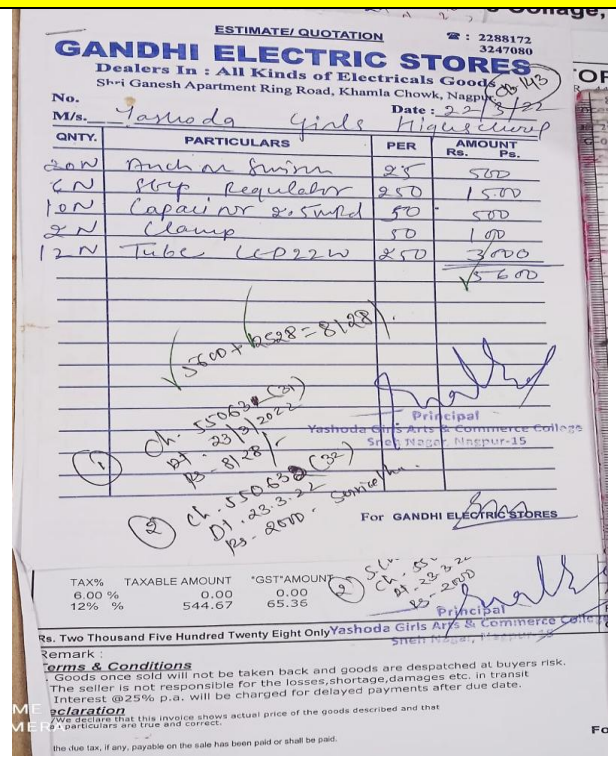 Collage,
ESTIMATE/ QUOTATION
☎ : 2288172
3247080
GANDHI ELECTRIC STORES
Dealers In : All Kinds of Electricals Goods
Shri Ganesh Apartment Ring Road, Khamla Chowk, Nagpur
CB-143
No.
Date : 22/3/22
M/s. Yashoda Girls Highschool
QNTY. PARTICULARS PER AMOUNT
Rs. Ps.
20N Anchor Switch 25 500
6N Step Regulator 250 1500
10N Capacitor 2.5 mfd 50 500
2N Clamp 50 100
12N Tube LED22W 250 3000
5600
5600 + 2528 = 8128/.
① Ch. 55063 (31)
Dt. 23/3/2022
Rs. 8128/-
Principal
Yashoda Girls Arts & Commerce College
Sneh Nagar, Nagpur-15
② Ch. 55063 (32)
Dt. 23.3.22
Rs. 2000 -
For GANDHI ELECTRIC STORES
TAX% TAXABLE AMOUNT "GST"AMOUNT
6.00 % 0.00 0.00
12% % 544.67 65.36
② Ch. 550
Dt. 23-3-22
Rs - 2000
Principal
Rs. Two Thousand Five Hundred Twenty Eight Only Yashoda Girls Arts & Commerce College
Sneh Nagar,
Remark :
Terms & Conditions
Goods once sold will not be taken back and goods are despatched at buyers risk.
The seller is not responsible for the losses,shortage,damages etc. in transit
Interest @25% p.a. will be charged for delayed payments after due date.
eclaration
We declare that this invoice shows actual price of the goods described and that
particulars are true and correct.
the due tax, if any, payable on the sale has been paid or shall be paid.
Fo